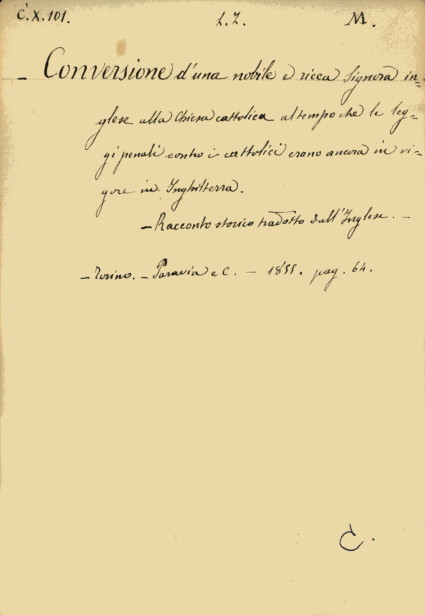 C.X.101. L.Z. M.
- Conversione d'una nobile e ricca Signora in=
glese alla Chiesa cattolica al tempo che le leg=
gi penali contro i cattolici erano ancora in vi=
gore in Inghilterra.
- Racconto storico tradotto dall'Inglese. -
- Torino. - Paravia e C. - 1855. pag. 64.
C.